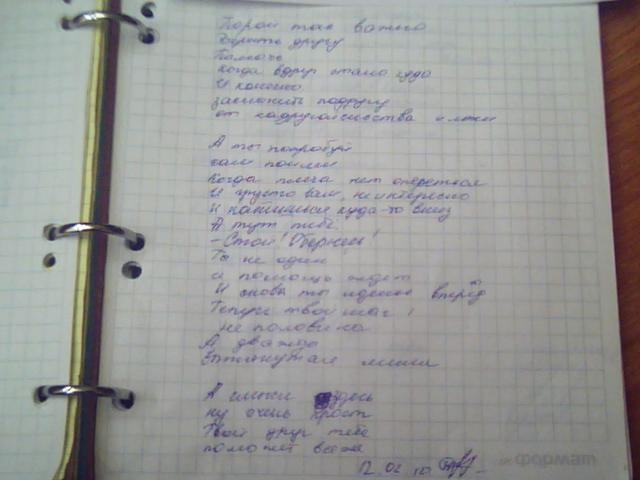 Порой так важно
Верить другу
Помочь
Когда вдруг стало худо
И конечно
заслонить подругу
от надругательства и лжи
А ты попробуй
сам пойми
Когда плеча нет опереться
И грустно вам, неинтересно
И катишься куда-то вниз
А тут тебе
- Стой! Обернись!
Ты не один
и помощь ждёт
И снова ты идешь вперёд
Теперь твой шаг
не половина
А дважды
А смысл здесь
ну очень прост
Твой друг тебе
поможет всегда
12.02.10
формат